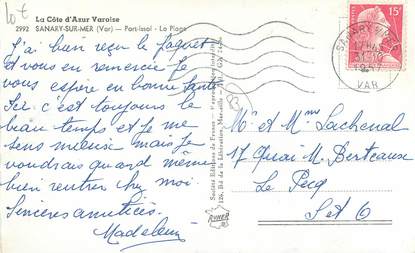 10t
La Côte d'Azur Varoise
2992 SANARY-SUR-MER (Var) — Port-Issol - La Plage
J'ai bien reçu le paquet
et vous en remercie. Je
vous espère en bonne santé
Ici c'est toujours le
beau temps et je me
sens mieux mais je
voudrais quand même
bien rentrer chez moi.
Sincères amitiés.
Madeleine
Société Editions de France
126, Bd de la Libération, Marseille
83
15F
SANARY S/MER
1957
VAR
Mr et Mme Lachenal
17 Quai M. Berteaux
Le Pecq
S et O